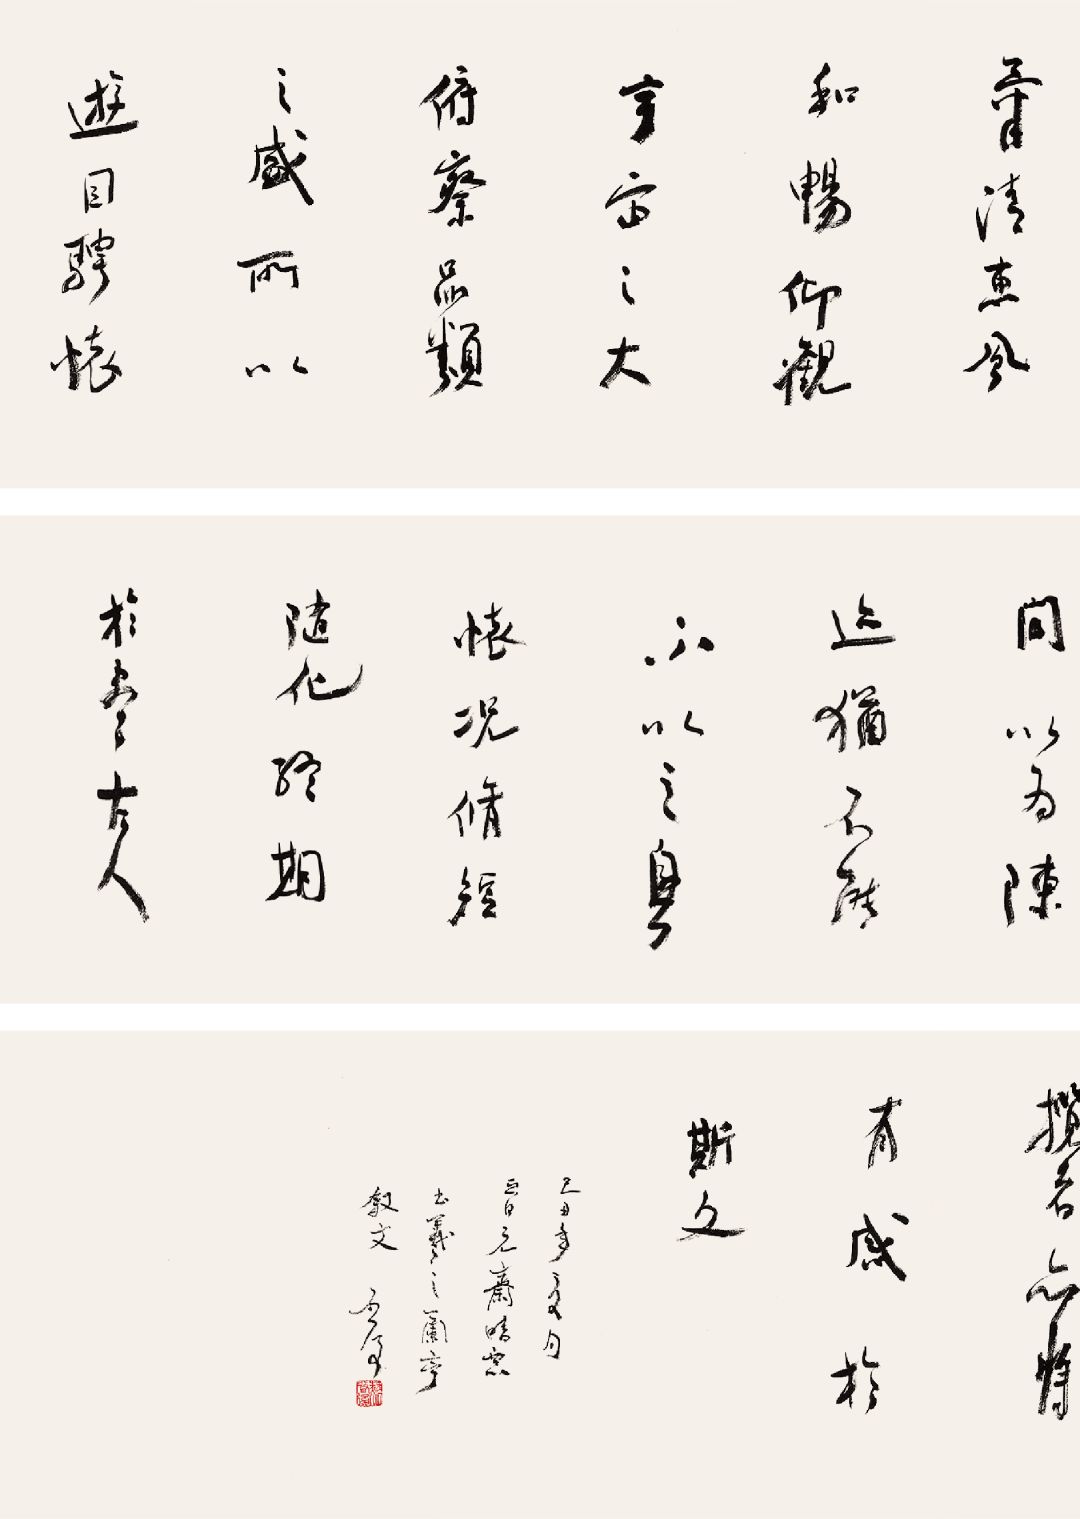 清惠風
和暢仰觀
宇宙之大
俯察品類
之盛所以
遊目騁懷
間以為陳
迹猶不能
不以之興
懷況脩短
隨化終期
於盡古人
攬者亦將
有感於
斯文
己丑年夏月
齋晴窓
書羲之蘭亭
敘文